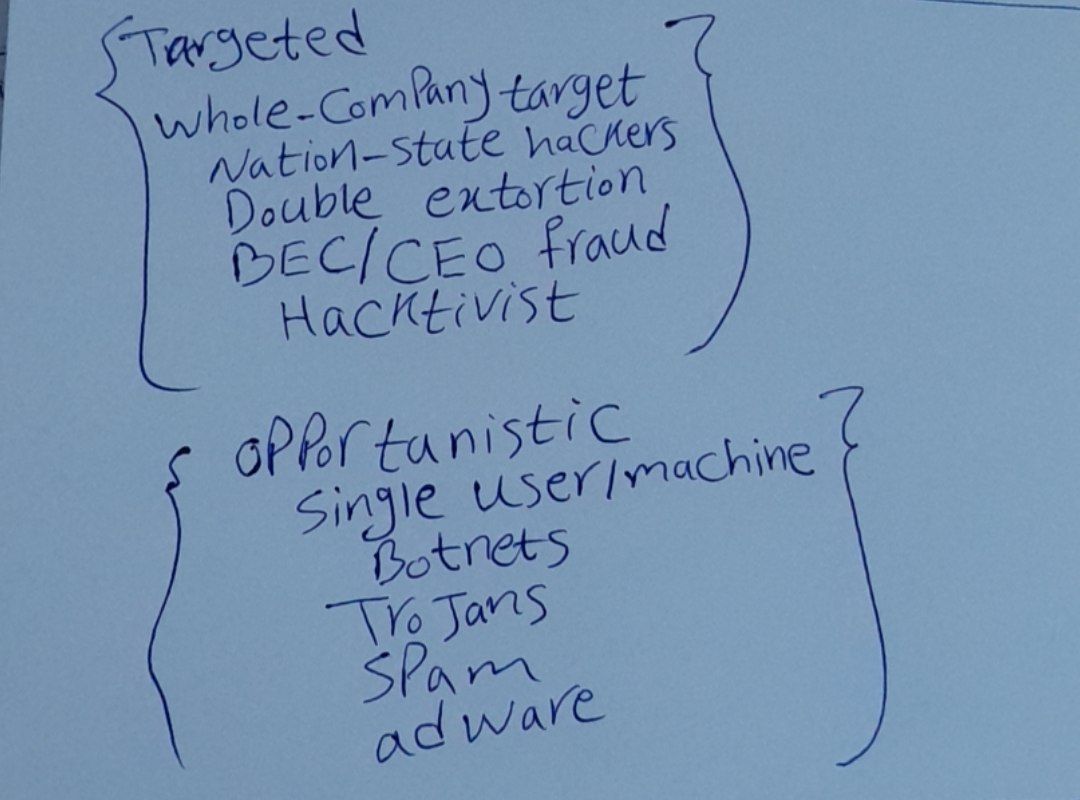 Targeted
Whole-Company target
Nation-state hackers
Double extortion
BEC/CEO fraud
Hacktivist
opportunistic
single user/machine
Botnets
Trojans
spam
adware